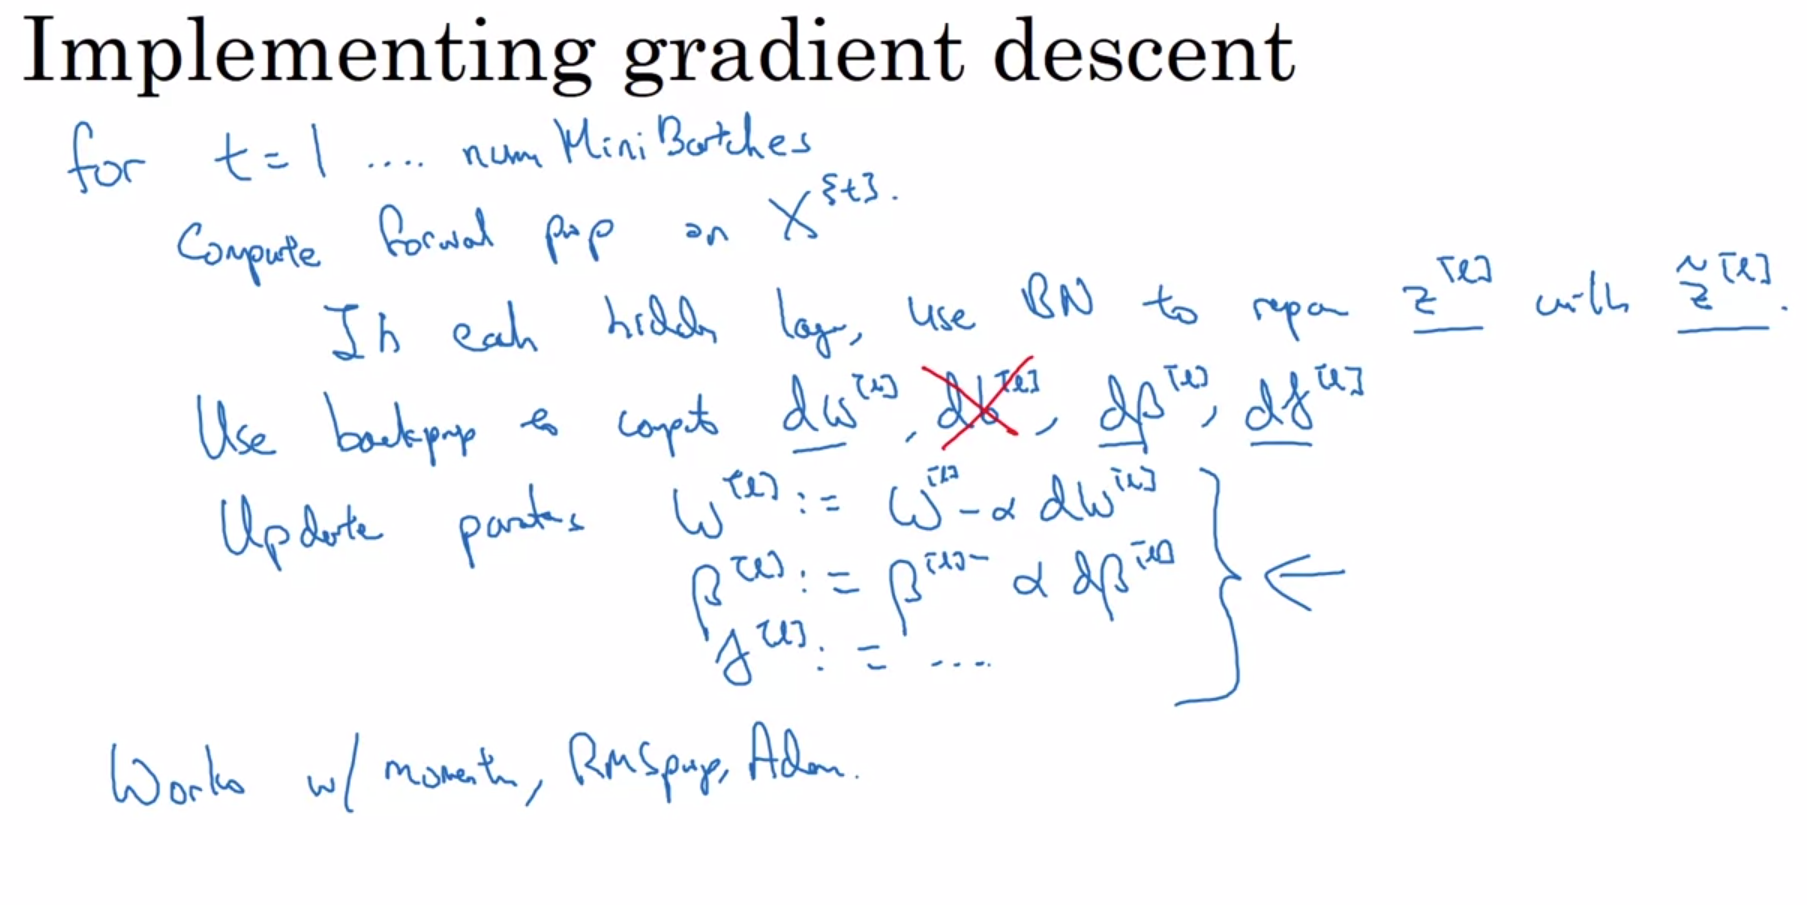 Implementing gradient descent
for t = 1 .... num MiniBatches
Compute forwad prop on X^{t}.
In each hidden lay, use BN to repan z^[l] with z̃^[l].
Use backprop to comput dw^[l], db^[l], dβ^[l], dγ^[l]
Update W^[l] := W^[l] - α dW^[l]
β^[l] := β^[l] - α dβ^[l]
γ^[l] := ....
Works w/ momentm, RMSprop, Adam.